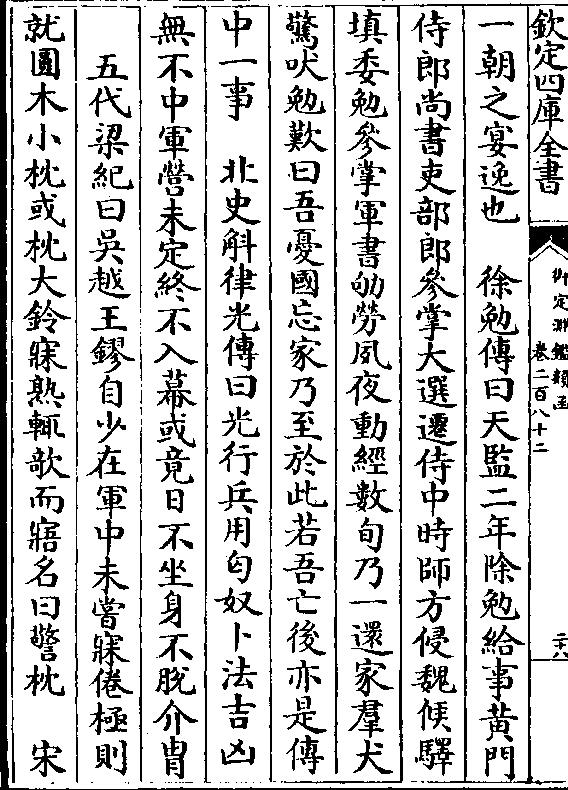 欽定四庫全書
御定淵鑑類函
卷二百八十二
二十八
一朝之宴逸也　徐勉傳曰天監二年除勉給事黃門
侍郎尚書吏部郎參掌大選遷侍中時師方侵魏候驛
填委勉參掌軍書劬勞夙夜動經數旬乃一還家羣犬
驚吠勉歎曰吾憂國忘家乃至於此若吾亡後亦是傳
中一事　北史斛律光傳曰光行兵用匈奴卜法吉凶
無不中軍營未定終不入幕或竟日不坐身不脫介胄
五代梁紀曰吳越王鏐自少在軍中未嘗寐倦極則
就圓木小枕或枕大鈴寐熟輒欹而寤名曰警枕　宋